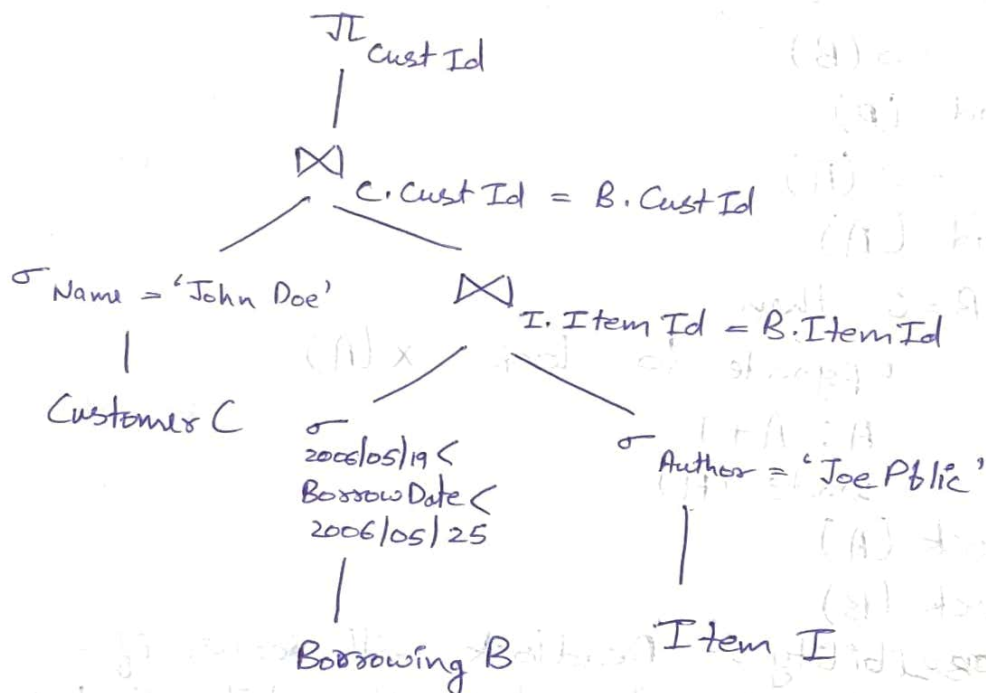 π Cust Id
⋈ C. Cust Id = B. Cust Id
σ Name = 'John Doe'
⋈ I. Item Id = B. Item Id
Customer C
σ
2006/05/19 <
Borrow Date <
2006/05/25
σ Author = 'Joe Pblic'
Borrowing B
Item I